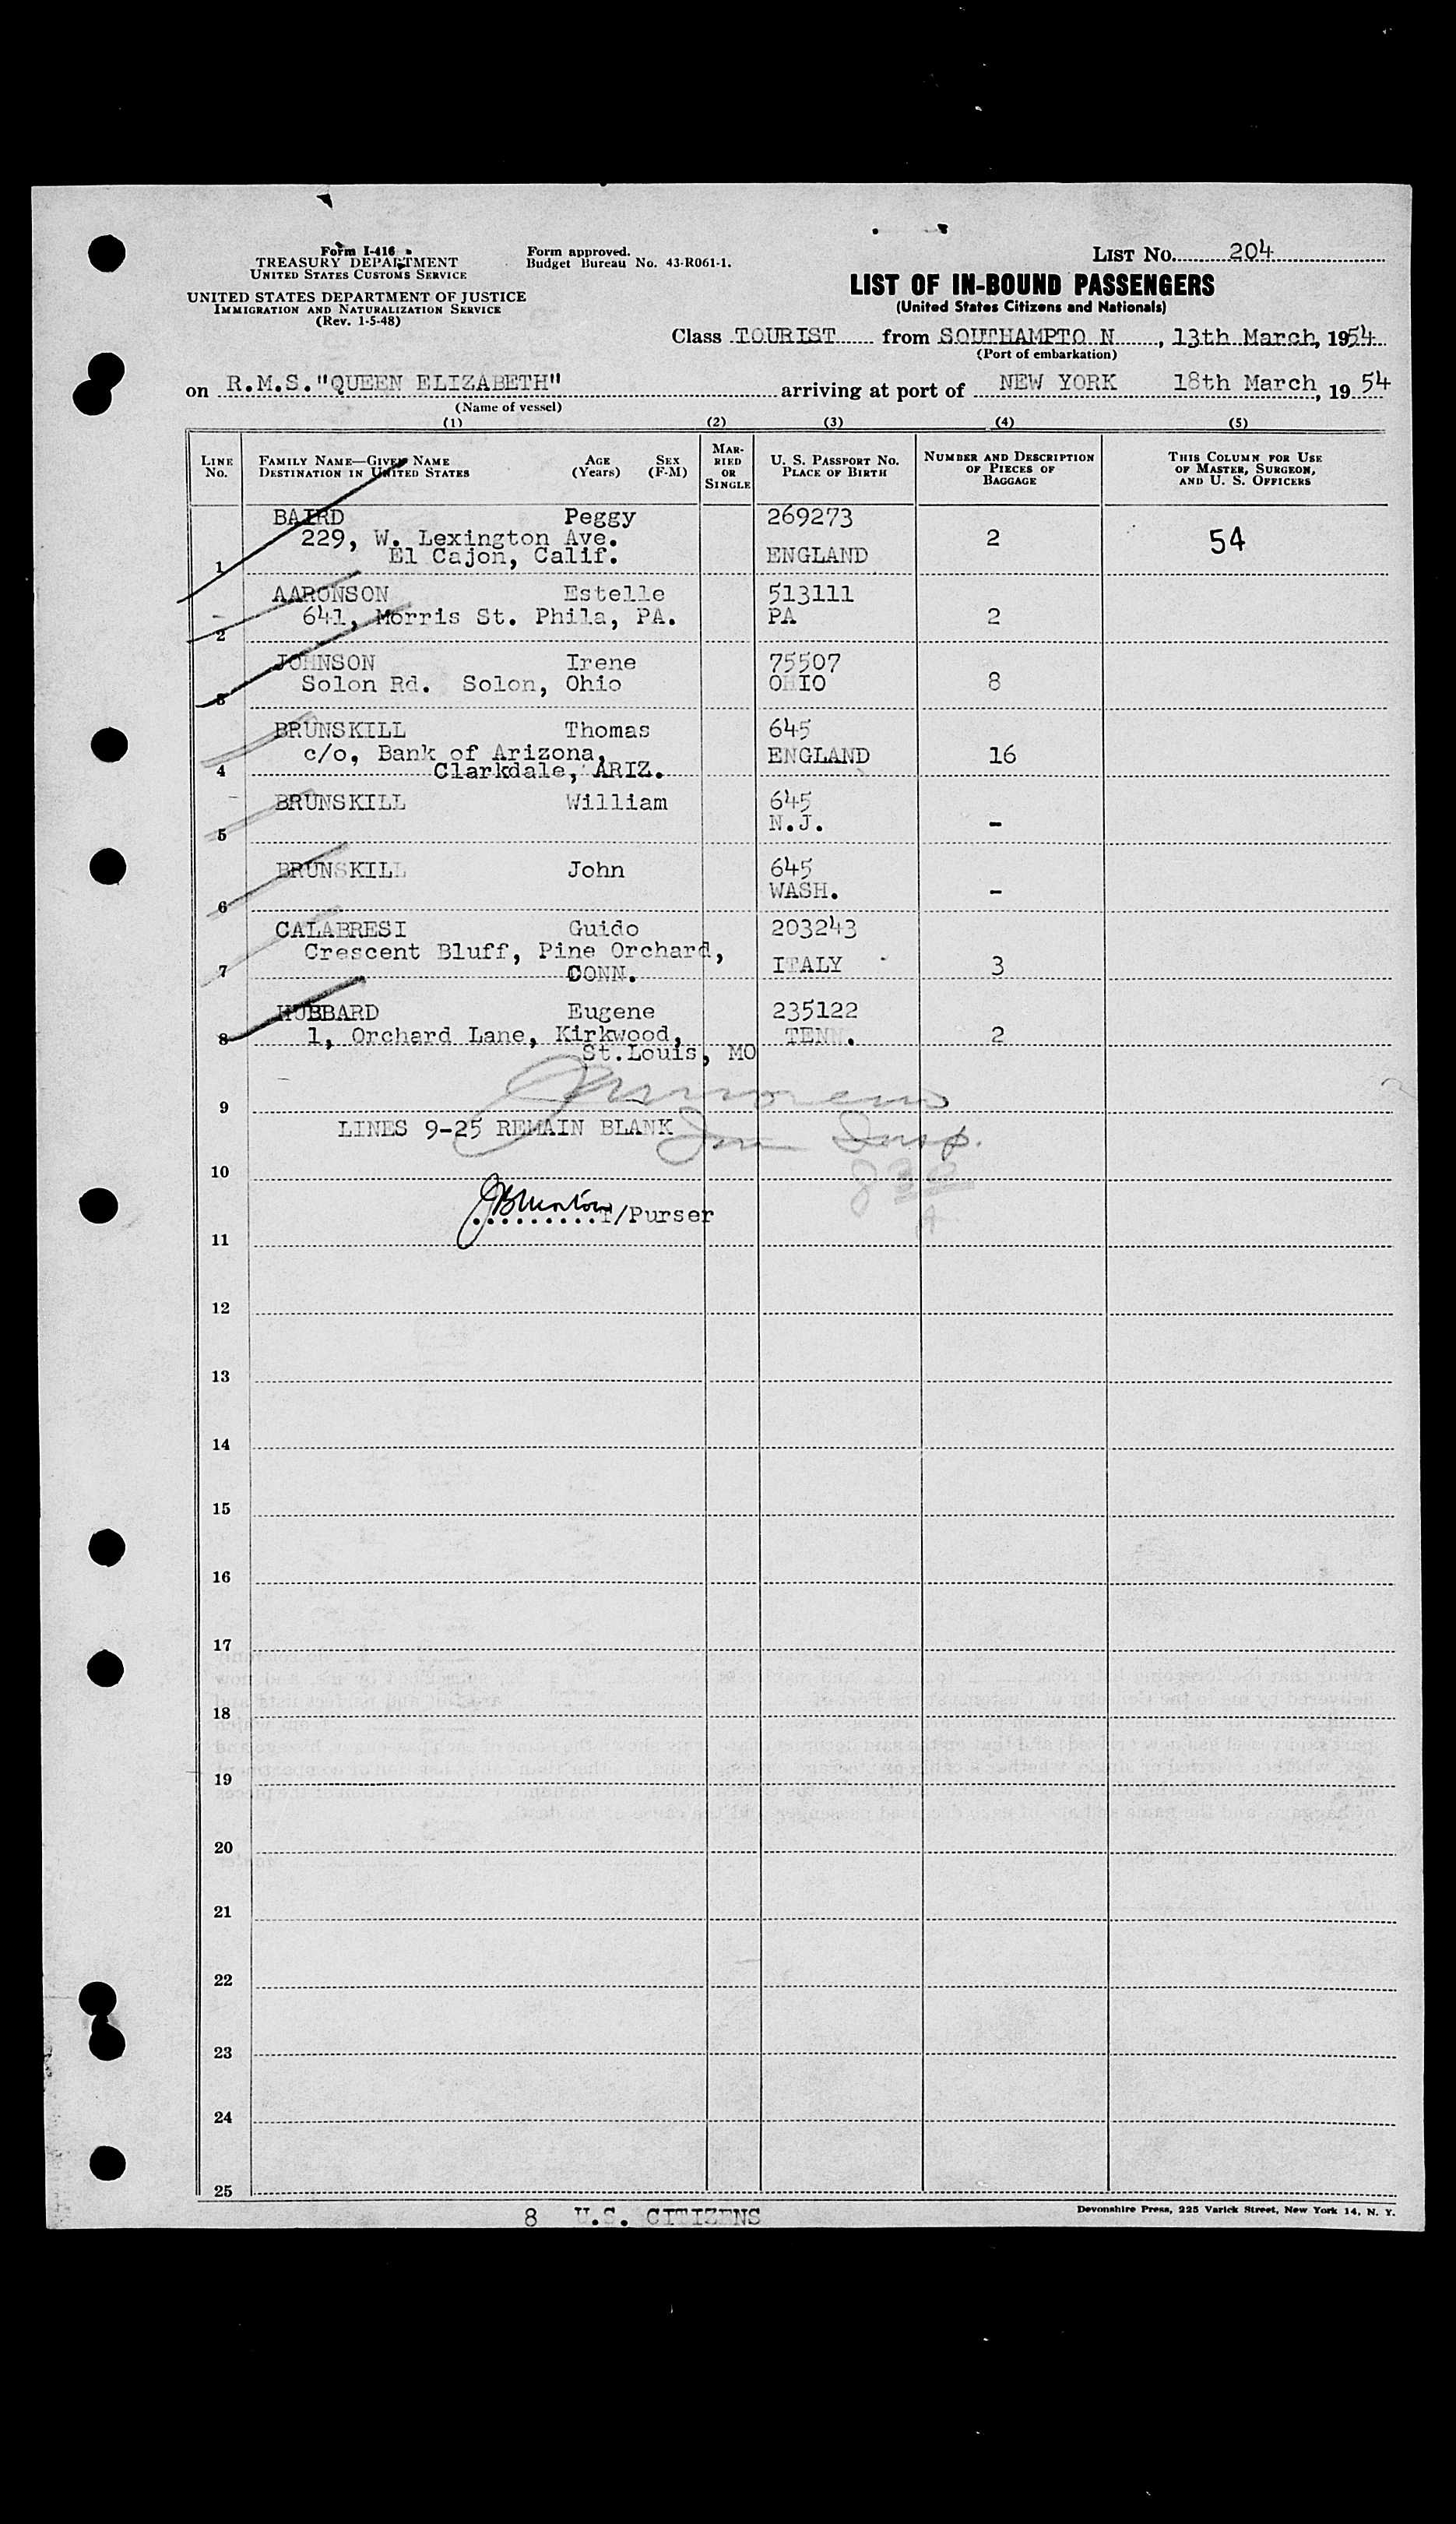 Form I-416
TREASURY DEPARTMENT
UNITED STATES CUSTOMS SERVICE
UNITED STATES DEPARTMENT OF JUSTICE
IMMIGRATION AND NATURALIZATION SERVICE
(Rev. 1-5-48)
Form approved.
Budget Bureau No. 43-R061-1.
LIST NO. 204
LIST OF IN-BOUND PASSENGERS
(United States Citizens and Nationals)
Class TOURIST from SOUTHAMPTO N, 13th March, 1954
(Port of embarkation)
on R.M.S."QUEEN ELIZABETH" arriving at port of NEW YORK 18th March, 19 54
(Name of vessel)
(1) (2) (3) (4) (5)
LINE NO. FAMILY NAME—GIVEN NAME DESTINATION IN UNITED STATES AGE (Years) SEX (F-M) MARRIED OR SINGLE U. S. PASSPORT NO. PLACE OF BIRTH NUMBER AND DESCRIPTION OF PIECES OF BAGGAGE THIS COLUMN FOR USE OF MASTER, SURGEON, AND U. S. OFFICERS
BAIRD Peggy 269273
229, W. Lexington Ave. 2 54
1 El Cajon, Calif. ENGLAND
AARONSON Estelle 513111
2 641, Morris St. Phila, PA. PA 2
JOHNSON Irene 75507
3 Solon Rd. Solon, Ohio OHIO 8
BRUNSKILL Thomas 645
c/o, Bank of Arizona, ENGLAND 16
4 Clarkdale, ARIZ.
BRUNSKILL William 645
5 N.J. -
BRUNSKILL John 645
6 WASH. -
CALABRESI Guido 203243
Crescent Bluff, Pine Orchard,
7 CONN. ITALY 3
HUBBARD Eugene 235122
8 1, Orchard Lane, Kirkwood, TENN. 2
St.Louis, MO
9
LINES 9-25 REMAIN BLANK
Insp.
10
T/Purser
11
12
13
14
15
16
17
18
19
20
21
22
23
24
25
8 U.S. CITIZENS
Devonshire Press, 225 Varick Street, New York 14, N. Y.